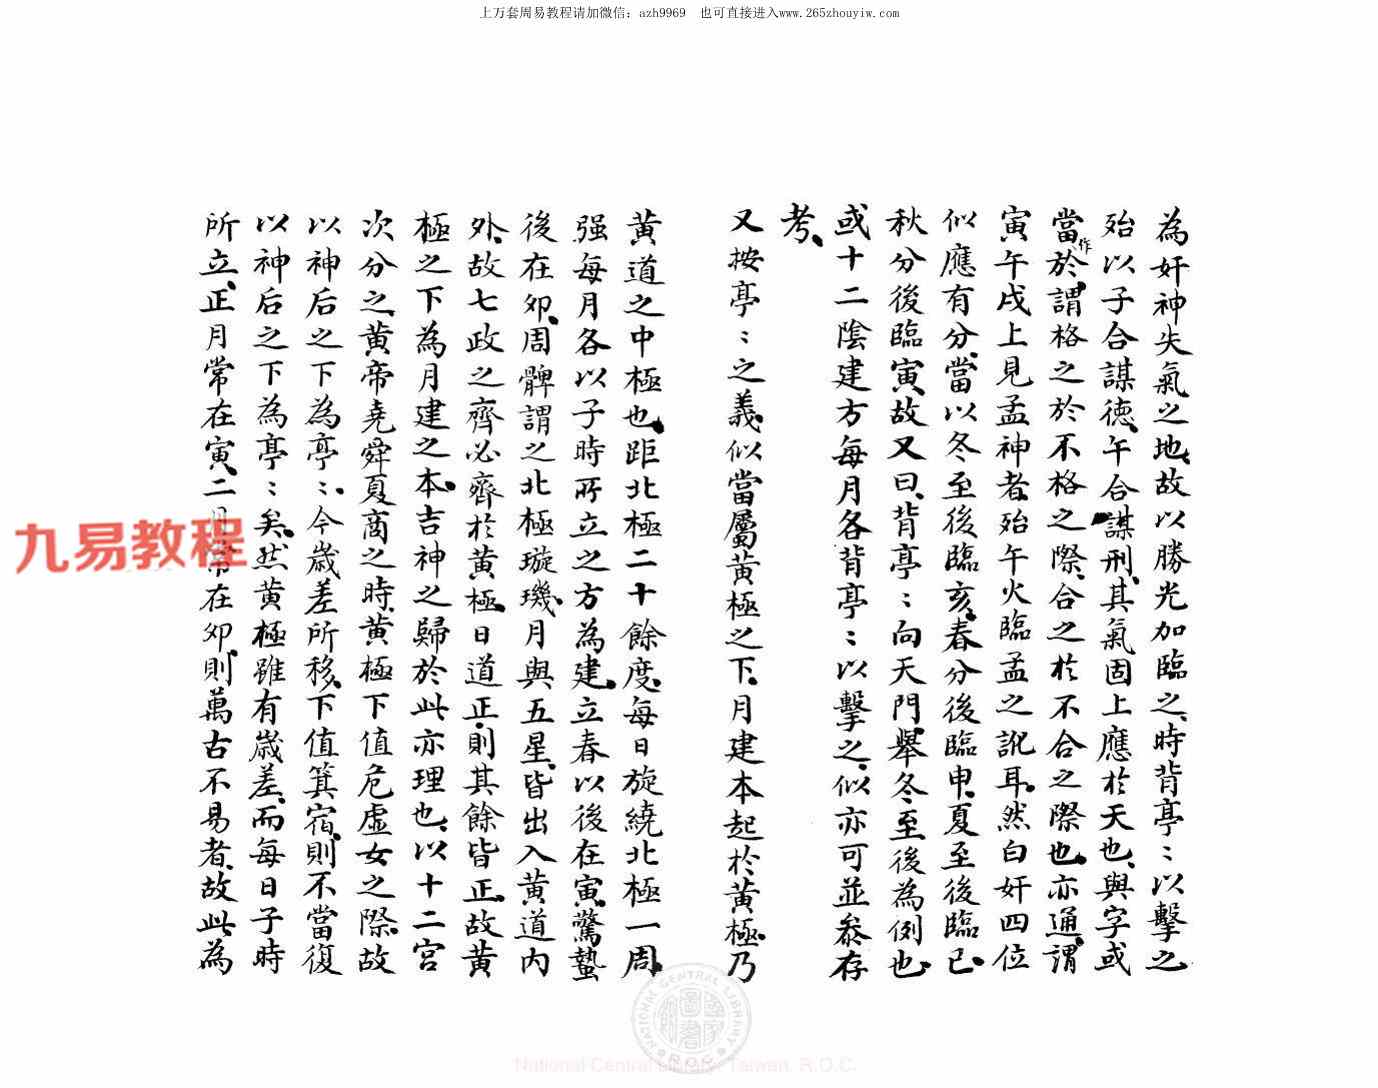 上万套周易教程请加微信：azh9969 也可直接进入www.265zhouyiw.com
為奸神失氣之地、故以勝光加臨之、時背亭：以擊之、
殆以子合謀德、午合謀刑、其氣固上應於天也、與字或
當作於、謂格之於不格之際、合之於不合之際也、亦通、謂
寅午戌上見孟神者、殆午火臨孟之訛耳、然白奸四位
似應有分、當以冬至後臨亥、春分後臨申、夏至後臨巳、
秋分後臨寅、故又曰、背亭：向天門、舉冬至後為例也、
或十二陰建方每月各背亭：以擊之、似亦可並叅存
考、
又按亭：之義、似當屬黃極之下、月建本起於黃極、乃
黃道之中極也、距北極二十餘度、每日旋繞北極一周
强、每月各以子時所立之方為建、立春以後在寅、驚蟄
後在卯、周髀謂之北極璇璣、月與五星、皆出入黃道內
外、故七政之齊必齊於黃極、日道正、則其餘皆正、故黃
極之下為月建之本、吉神之歸於此、亦理也、以十二宮
次分之、黃帝堯舜夏商之時、黃極下值危虛女之際、故
以神后之下為亭：、今歲差所移、下值箕宿、則不當復
以神后之下為亭：矣、然黃極雖有歲差、而每日子時
所立、正月常在寅、二月常在卯、則萬古不易者、故此為
九易教程
NATIONAL CENTRAL LIBRARY R.O.C.
National Central Library, Taiwan, R.O.C.